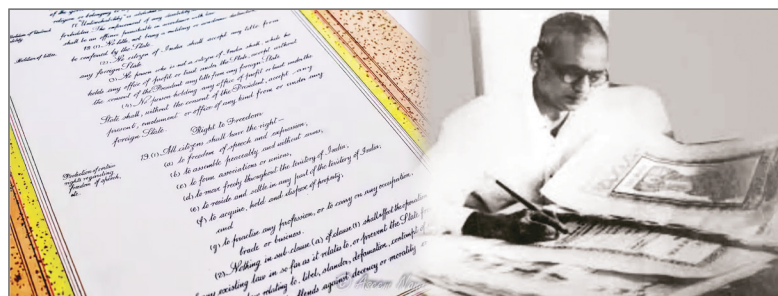 of the
citizen or belonging to
17. "Untouchability" is abolished
Abolition of Untouchability.
forbidden. The enforcement of any disability
shall be an offence punishable in accordance with law.
Abolition of titles.
18. (1). No title, not being a military or academic distinction,
to conferred by the State.
(2). No citizen of India shall accept any title from
any foreign State.
(3). No person who is not a citizen of India shall, while he
holds any office of profit or trust under the State, accept without
the consent of the President any title from any foreign State.
(4). No person holding any office of profit or trust under the
State shall, without the consent of the President, accept any
present, emolument, or office of any kind from or under any
foreign State.
Right to Freedom
19. (1). All citizens shall have the right—
Protection of certain rights regarding freedom of speech, etc.
(a) to freedom of speech and expression;
(b) to assemble peaceably and without arms;
(c) to form associations or unions;
(d) to move freely throughout the territory of India;
(e) to reside and settle in any part of the territory of India;
(f) to acquire, hold and dispose of property;
and
(g) to practise any profession, or to carry on any occupation,
trade or business.
(2). Nothing in sub-clause (a) of clause (1) shall affect the operation
any existing law in so far as it relates to, or prevent the State
relating to, libel, slander, defamation, contempt of
offends against decency or morality